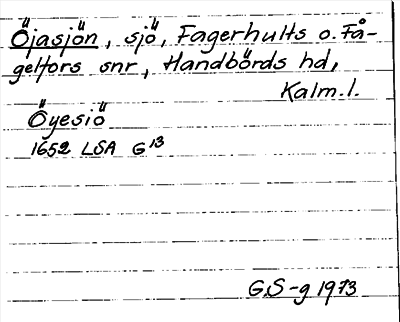 Öjasjön, sjö, Fagerhults o. Få-
gelfors snr, Handbörds hd,
Kalm. l.
Öyesiö
1652 LSA G 13
G.S-g 1973